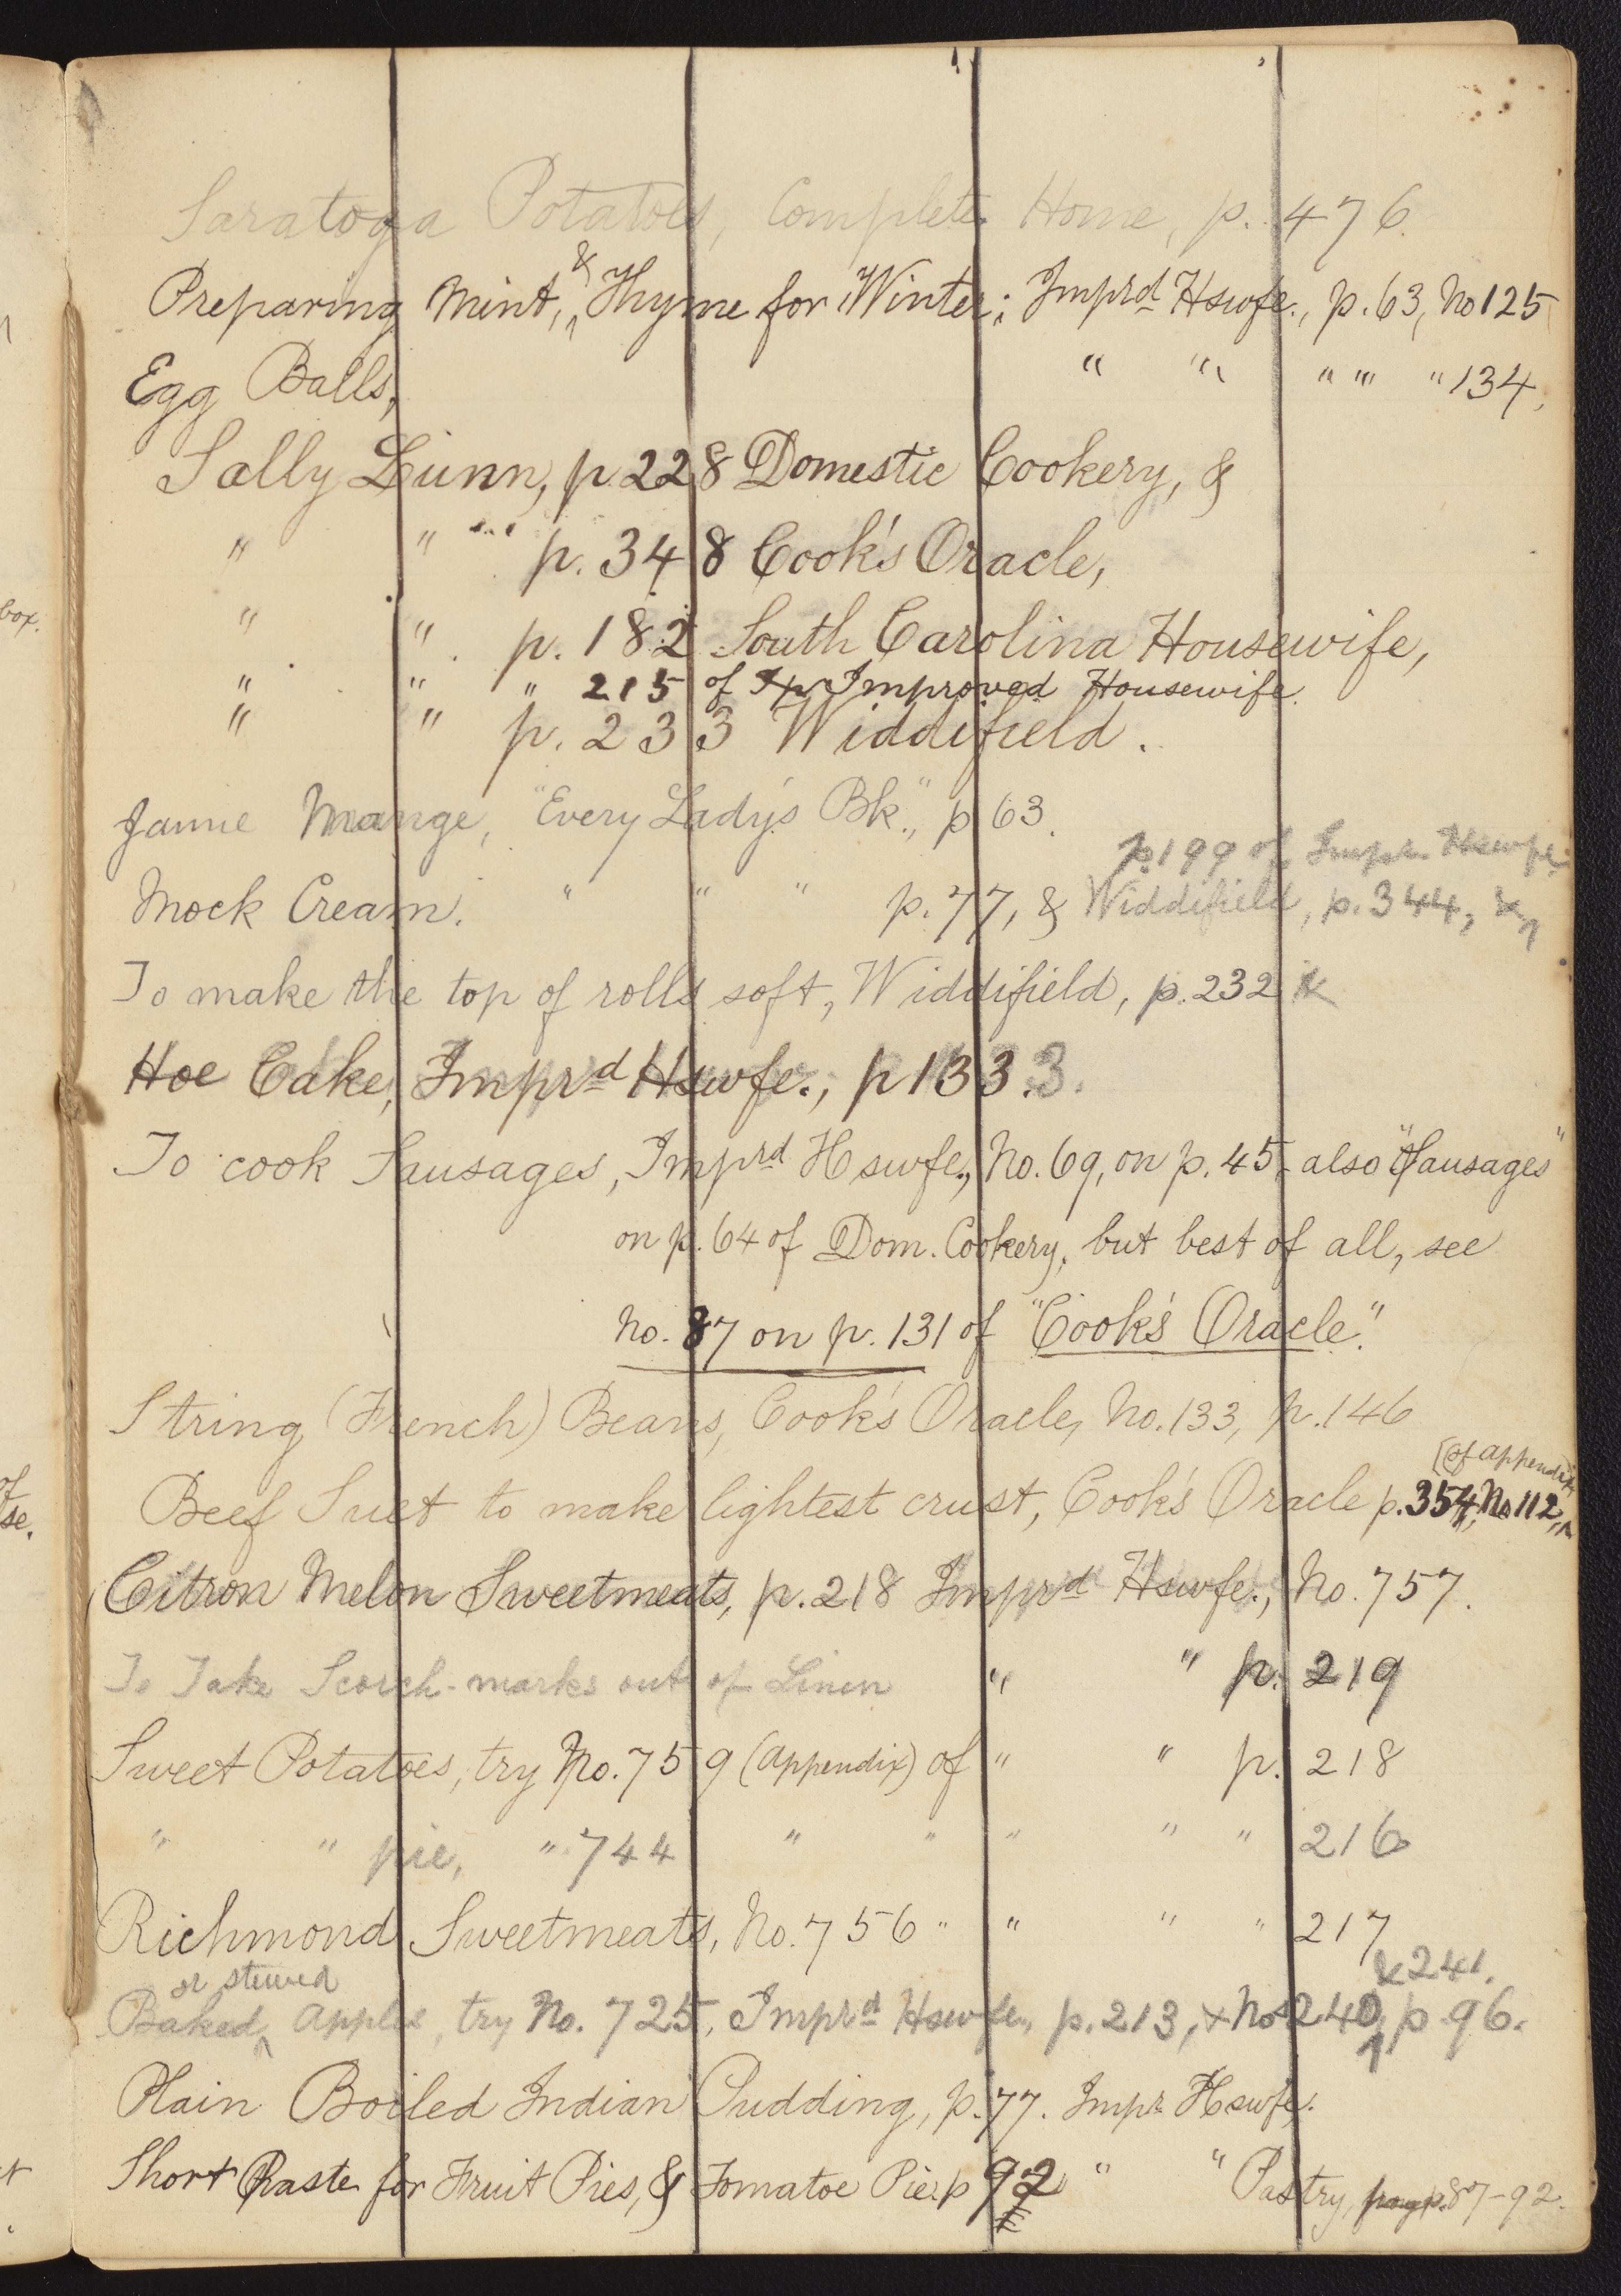 Saratoga Potatoes, Complete Home, p. 476.
Preparing Mint, & Thyme for Winter; Imprd Hswfe., p. 63, No 125
Egg Balls, " " " "' " 134.
Sally Lunn, p. 228 Domestic Cookery, &
" " " p. 348 Cook's Oracle,
" " p. 182 South Carolina Housewife,
" " " 215 of Improved Housewife.
" " p. 233 Widdifield.
Jaune Mange, "Every Lady's Bk.", p 63.
p. 199 of Impr. Hswfe.
Mock Cream. " " " p. 77, & Widdifield, p. 344, &
To make the top of rolls soft, Widdifield, p. 232
Hoe Cake, Imprd Hswfe., p 133.3.
To cook Sausages, Imprd Hswfe., No. 69, on p. 45, also "Sausages"
on p. 64 of Dom. Cookery, but best of all, see
No. 87 on p. 131 of "Cook's Oracle."
String (French) Beans, Cook's Oracle, No. 133, p. 146
[of appendix,
Beef Suet to make lightest crust, Cook's Oracle p. 354, No 112,
Citron Melon Sweetmeats, p. 218 Imprd Hswfe., No. 757.
To Take Scorch-marks out of Linen " " p. 219
Sweet Potatoes, try No. 759 (Appendix) of " " p. 218
" " pie, " 744 " " " " " 216
Richmond Sweetmeats, No. 756 " " " " 217
or stewed & 241.
Baked Apples, try No. 725, Imprd Hswfe, p. 213, & No 240, p 96.
Plain Boiled Indian Pudding, p. 77. Impr Hswfe.
Short Paste for Fruit Pies, & Tomatoe Pie. p 92 " " Pastry, p. 87-92.